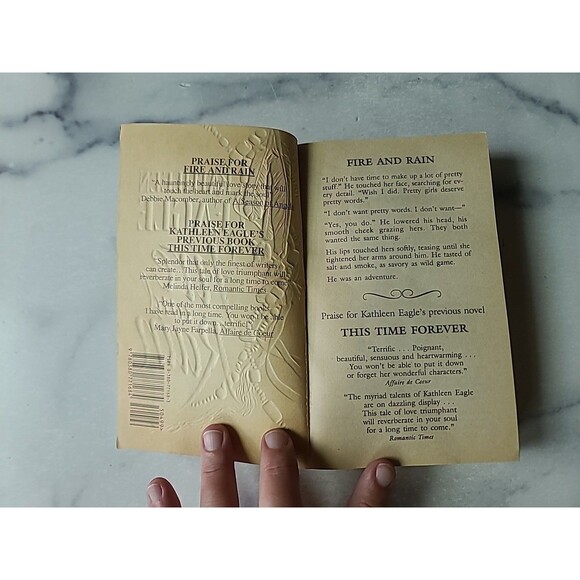 PRAISE FOR
FIRE AND RAIN
"A hauntingly beautiful love story that will
touch the heart and mark the soul."
Debbie Macomber, author of A Season of Angels
PRAISE FOR
KATHLEEN EAGLE'S
PREVIOUS BOOK
THIS TIME FOREVER
"Splendor that only the finest of writers
can create... This tale of love triumphant will
reverberate in your soul for a long time to come."
Melinda Helfer, Romantic Times
"One of the most compelling books
I have read in a long time. You won't be able
to put it down... terrific!"
Mary Jayne Farpella, Affaire de Coeur
FIRE AND RAIN
"I don't have time to make up a lot of pretty
stuff." He touched her face, searching for ev-
ery detail. "Wish I did. Pretty girls deserve
pretty words."
"I don't want pretty words. I don't want—"
"Yes, you do." He lowered his head, his
smooth cheek grazing hers. They both
wanted the same thing.
His lips touched hers softly, teasing until she
tightened her arms around him. He tasted of
salt and smoke, as savory as wild game.
He was an adventure.
Praise for Kathleen Eagle's previous novel
THIS TIME FOREVER
"Terrific . . . Poignant,
beautiful, sensuous and heartwarming . . .
You won't be able to put it down
or forget her wonderful characters."
Affaire de Coeur
"The myriad talents of Kathleen Eagle
are on dazzling display . . .
This tale of love triumphant
will reverberate in your soul
for a long time to come."
Romantic Times